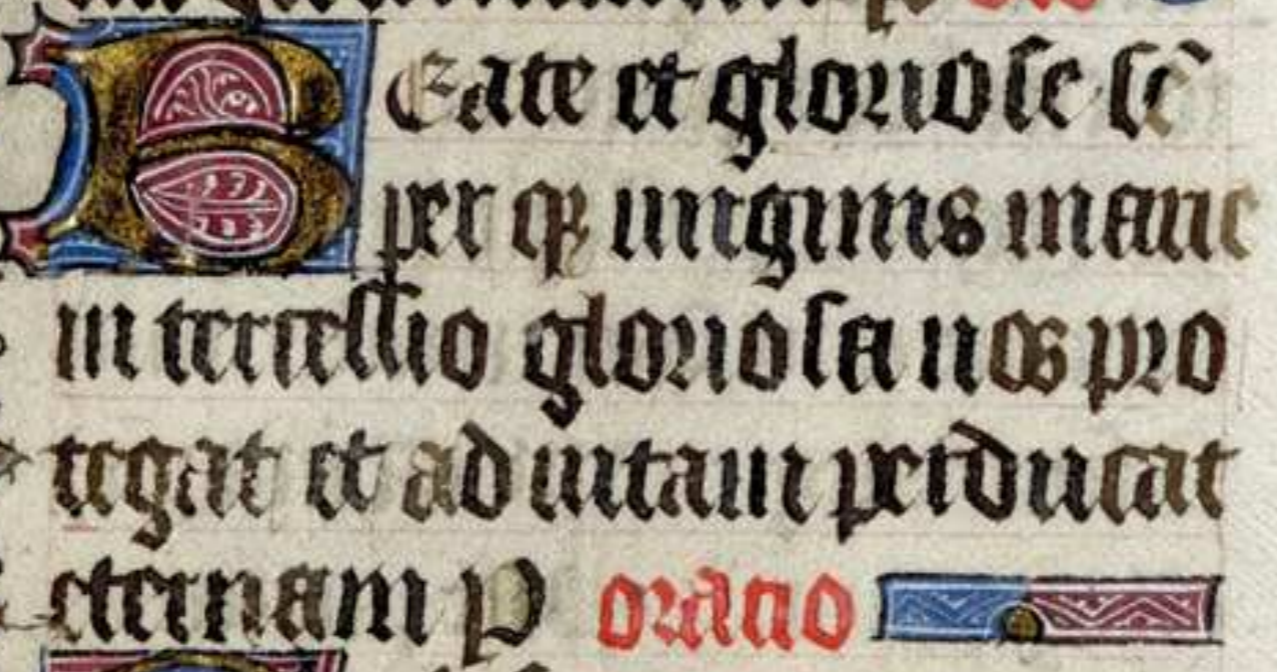 Beate et gloriose sẽ
per qȝ uirginis marie
in tercessio gloriosa nos pro
tegat et ad uitam perducat
eternam p oratio